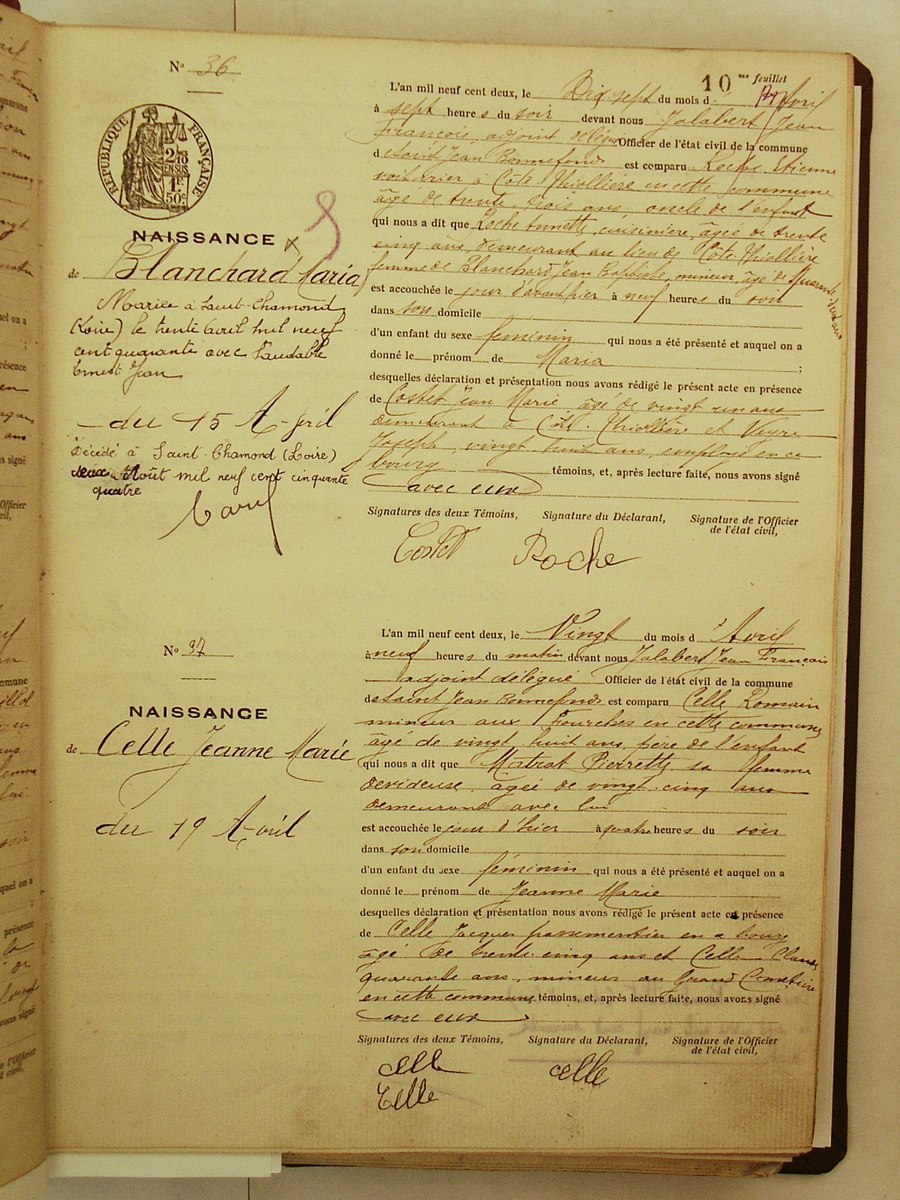 10 me feuillet
N° 36
RÉPUBLIQUE FRANÇAISE
2/10 EN SUS
1F 50c
NAISSANCE
de Blanchard Maria
Mariée à Saint-Chamond
(Loire) le trente avril mil neuf
cent quarante avec Faudable
Ernest Jean
du 15 Avril
Décédé à Saint-Chamond (Loire)
deux Août mil neuf cent cinquante
quatre
L'an mil neuf cent deux, le Dix sept du mois d Avril
à sept heures du soir devant nous Jalabert Jean
François, adjoint délégué Officier de l'état civil de la commune
d Saint Jean Bonnefonds est comparu Roche Etienne
à Côte Thiollière en cette commune
âgé de trente trois ans, oncle de l'enfant
qui nous a dit que Roche cuisinière, agée de trente
cinq ans, demeurant au lieu de Côte Thiollière
femme de Blanchard Jean Baptiste, mineur, âgé de quarante
deux ans
est accouchée le jour d'avant hier à neuf heures du soir
dans son domicile
d'un enfant du sexe féminin qui nous a été présenté et auquel on a
donné le prénom de Maria ;
desquelles déclaration et présentation nous avons rédigé le présent acte en présence
de Costet Jean Marie âgé de vingt un ans
demeurant à Côte Thiollière et
Joseph vingt huit ans, employé en ce
bourg témoins, et, après lecture faite, nous avons signé
avec eux
Signatures des deux Témoins, Signature du Déclarant, Signature de l'Officier
de l'état civil,
Costet Roche
N° 37
NAISSANCE
de Celle Jeanne Marie
du 19 Avril
L'an mil neuf cent deux, le Vingt du mois d Avril
à neuf heures du matin devant nous Jalabert Jean François
adjoint délégué Officier de l'état civil de la commune
de Saint Jean Bonnefonds est comparu Celle Romain
mineur aux Fourches en cette commune
âgé de vingt huit ans, père de l'enfant
qui nous a dit que Pierrette sa femme
dévideuse, agée de vingt cinq ans
demeurant avec lui
est accouchée le jour d'hier à quatre heures du soir
dans son domicile
d'un enfant du sexe féminin qui nous a été présenté et auquel on a
donné le prénom de Jeanne Marie
desquelles déclaration et présentation nous avons rédigé le présent acte en présence
de Celle Jacques passementier en ce bourg
âgé de trente cinq ans et Celle Claude
quarante ans, mineur au Grand Cimetière
en cette commune témoins, et, après lecture faite, nous avons signé
avec eux
Signatures des deux Témoins, Signature du Déclarant, Signature de l'Officier
de l'état civil,
Celle Celle
Celle